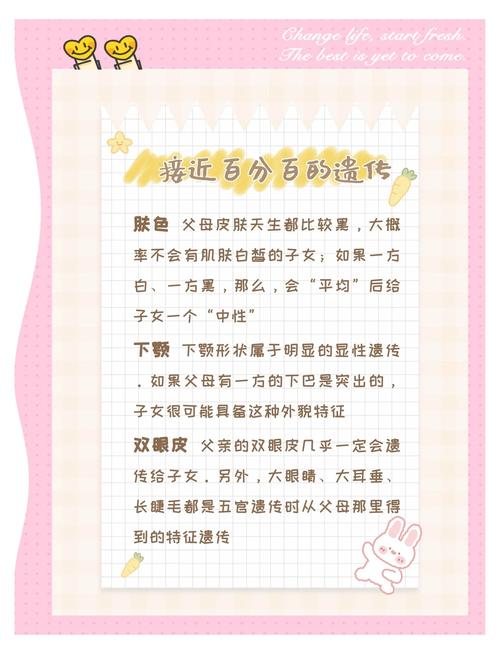 Change life, start fresh.
The best is yet to come.
接近百分百的遗传
肤色 父母皮肤天生都比较黑，大概
率不会有肌肤白皙的子女；如果一方
白、一方黑，那么，会“平均”后给
子女一个“中性”
下颚 下颚形状属于明显的显性遗传
．如果父母有一方的下巴是突出的，
子女很可能具备这种外貌特征
双眼皮 父亲的双眼皮几乎一定会遗
传给子女．另外，大眼睛、大耳垂、
长睫毛都是五官遗传时从父母那里得
到的特征遗传